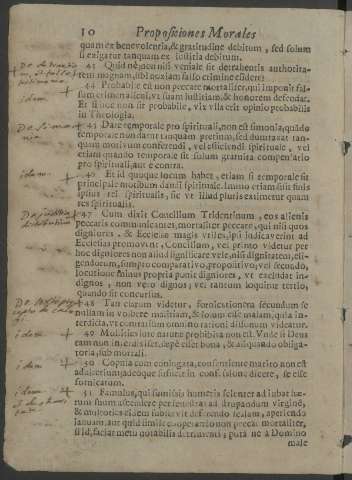 10 Proposiciones Morales
quam ex benevolentia, & gratitudine debitum, sed solum
si exigatur tanquam ex iustitia debitum.
43 Quid ni non nisi veniale sit detrahentis authorita-
tem magnam, sibi noxiam falso crimine elidere?
44 Probabile est non peccare mortaliter, qui imponit fal-
sum crimen alicui, vt suam iustitiam, & honorem defendat.
Et si hoc non sit probabile, vix vlla erit opinio probabilis
in Theologia.
45 Dare temporale pro spirituali, non est simonia, quãdo
temporale non datur tanquam pretium, sed dumtaxat tan-
quam motivum conferendi, vel efficiendi spirituale, vel
etiam quando temporale sit solum gratuita compensatio
pro spirituali, aut è contra.
46 Et id quoque locum habet, etiam si temporale sit
principale motivum dandi spirituale. Immo etiam si sit finis
ipsius rei spiritualis, sic vt illud pluris existimetur quam
res spiritualis.
47 Cum dixit Concilium Tridentinum, eos alienis
peccatis communicantes, mortaliter peccare, qui nisi quos
digniores, & Ecclesiæ magis vtiles, ipsi iudicaverint ad
Ecclesias promovent, Concilium, vel primo videtur per
hoc digniores non aliud significare velle, nisi dignitatem, eli-
gendorum, sumpto comparativo, pro positivo; vel secundo,
locutione minus propria ponit digniores, vt excludat in-
dignos, non vero dignos; vel tandem loquitur tertio,
quando fit concursus.
48 Tam clarum videtur, fornicationem secundum se
nullam involvere malitiam, & solum esse malam, quia in-
terdicta, vt contrarium omnino rationi dissonum videatur.
49 Mollities iure naturæ prohibita non est. Vnde si Deus
eam non interdixisset, sæpè esset bona, & aliquando obliga-
toria, sub mortali.
50 Copula cum coniugata, consentiente marito non est
adulterium, adeoque sufficit in confessione dicere, se esse
fornicatum.
51 Famulus, qui submissis humeris scienter adiubat he-
rum suum ascendere per fenestras ad stuprandum virginẽ,
& multoties eidem subservit deferendo scalam, aperiendo
ianuam, aut quid simile cooperando non peccat mortaliter,
si id faciat metu notabilis detrimenti, puta ne à Domino
male
idem
De Simonia
idem
idem
idem
idem